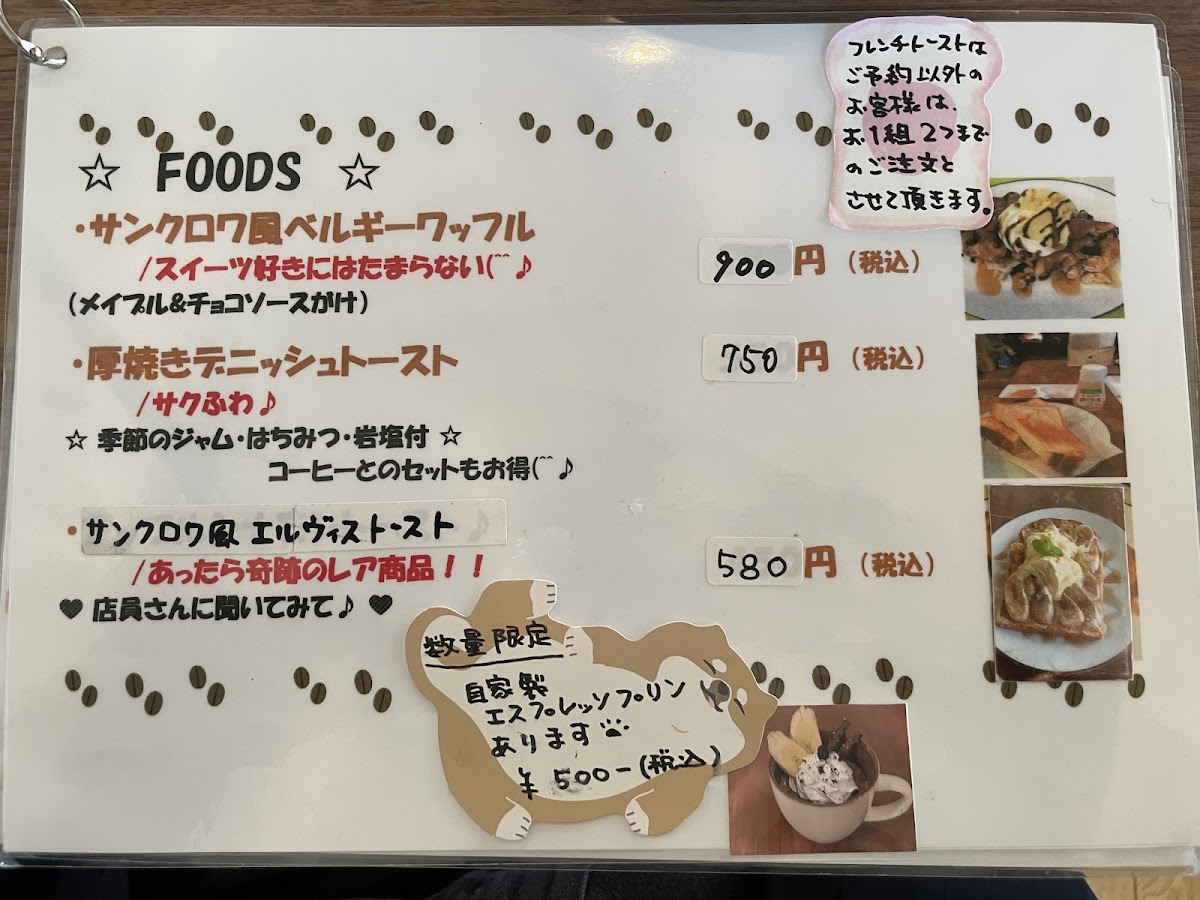 フレンチトーストは
ご予約以外の
お客様は、
お1組2つまで
のご注文と
させて頂きます。
☆ FOODS ☆
・サンクロワ風ベルギーワッフル
/スイーツ好きにはたまらない(^^♪
900円（税込）
（メイプル&チョコソースがけ）
・厚焼きデニッシュトースト
750円（税込）
/サクふわ♪
☆ 季節のジャム・はちみつ・岩塩付 ☆
コーヒーとのセットもお得(^^♪
・サンクロワ風 エルヴィストースト
/あったら奇跡のレア商品！！
580円（税込）
♥ 店員さんに聞いてみて♪ ♥
数量限定
自家製
エスプレッソプリン
あります
¥500-(税込)